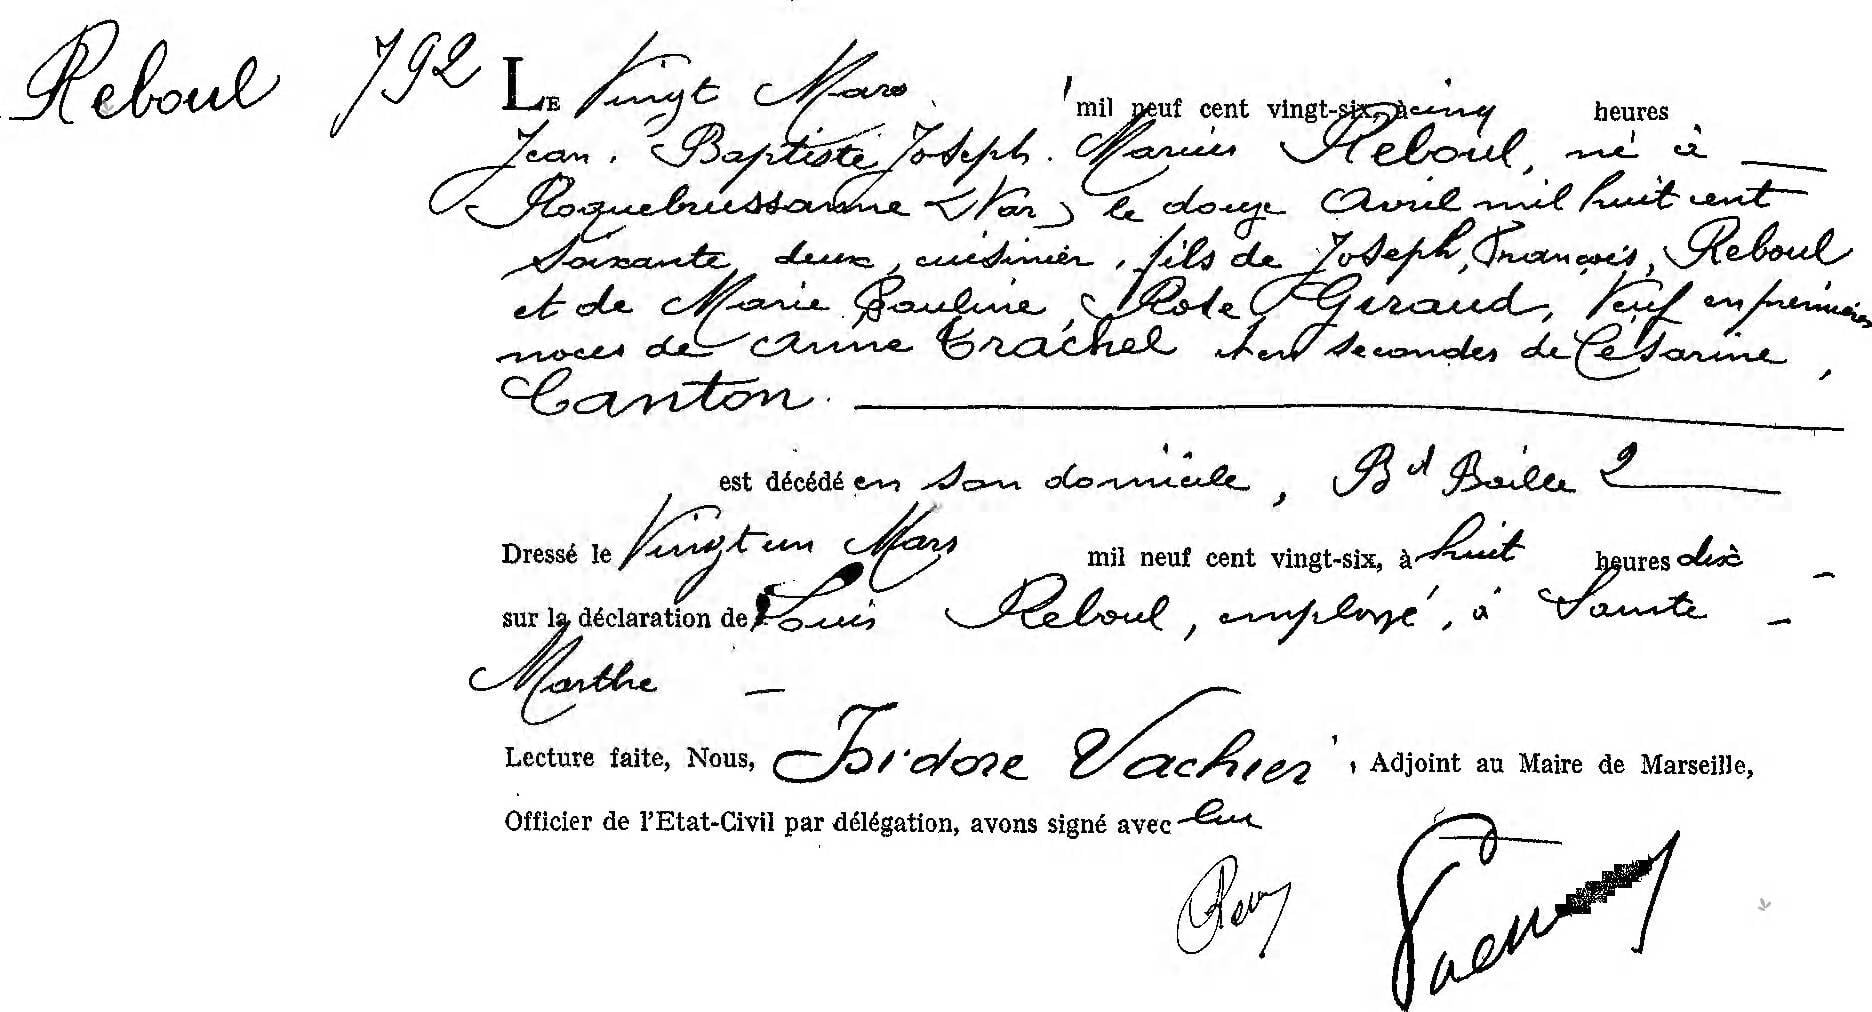 Reboul 792 LE Vingt Mars mil neuf cent vingt-six, à cinq heures
Jean, Baptiste Joseph. Marius Reboul, né à
Roquebrussanne (Var) le douze Avril mil huit cent
soixante deux, cuisinier, fils de Joseph, François, Reboul
et de Marie Pauline, Rose Giraud, Veuf en premières
noces de Anne Trachel et en secondes de Césarine,
Canton.
est décédé en son domicile, Bd Baille 2
Dressé le Vingt un Mars mil neuf cent vingt-six, à huit heures dix
sur la déclaration de Louis Reboul, employé, à Sainte
Marthe
Lecture faite, Nous, Isidore Vachier, Adjoint au Maire de Marseille,
Officier de l'Etat-Civil par délégation, avons signé avec lui